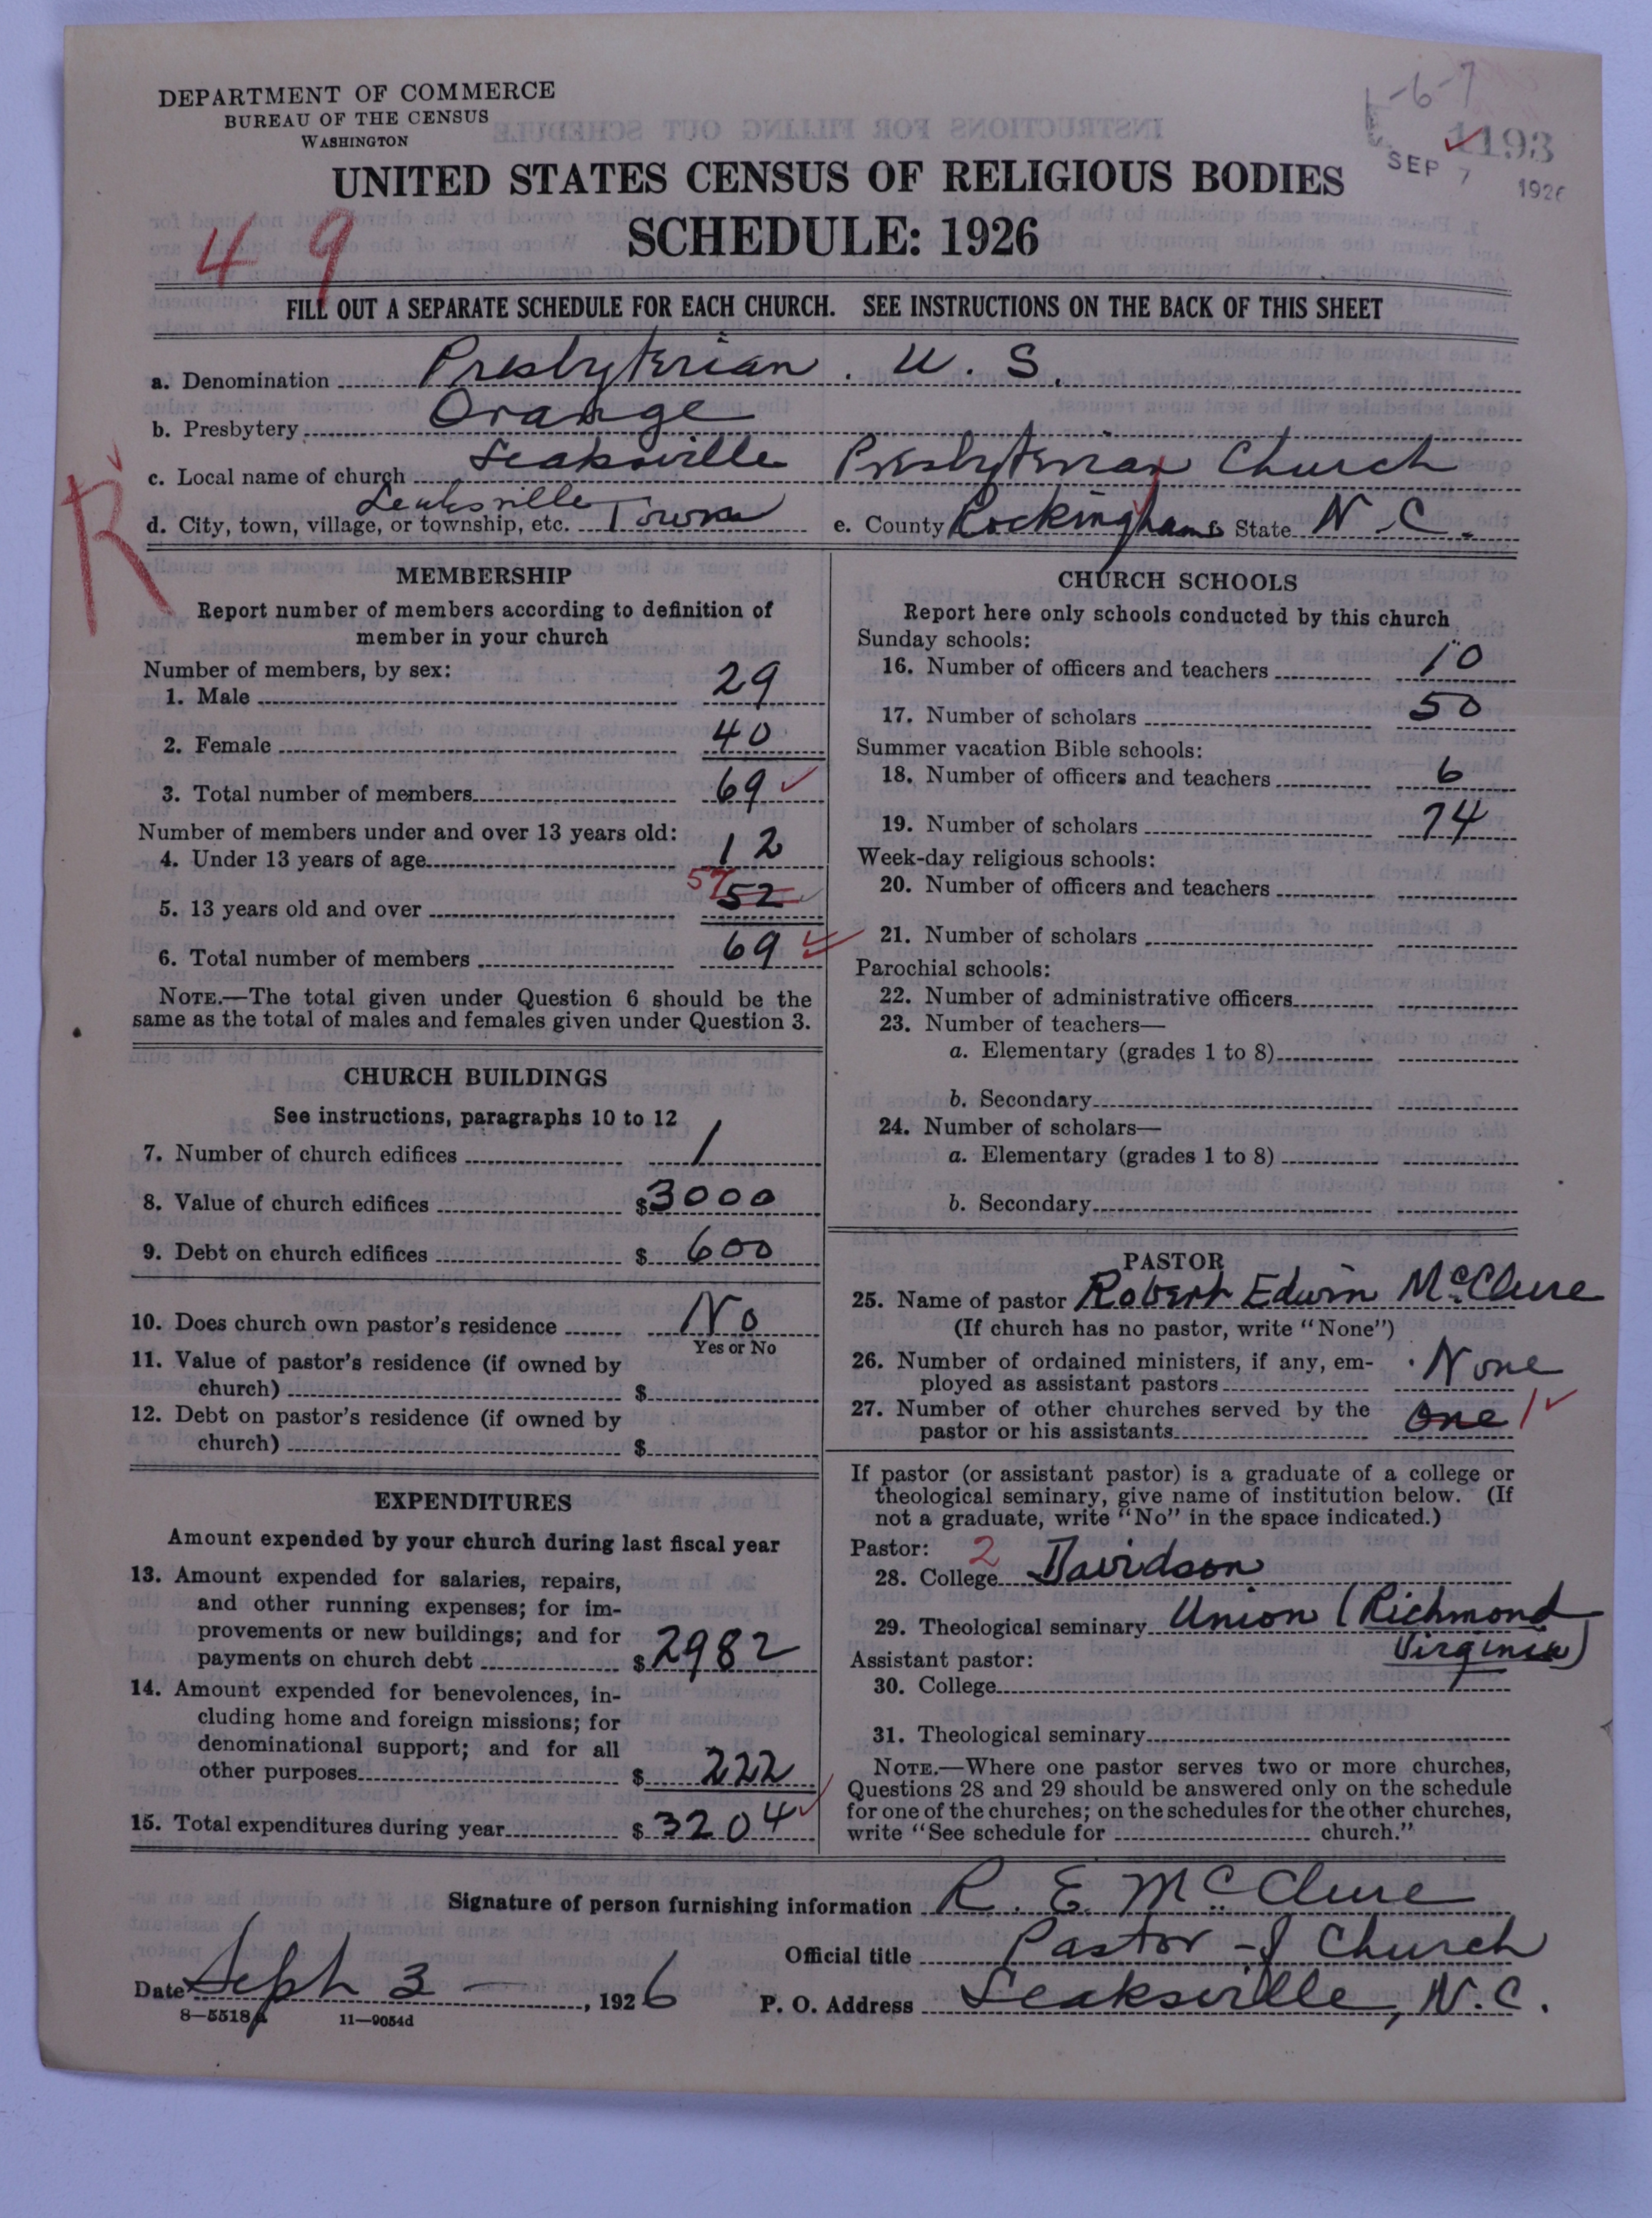 DEPARTMENT OF COMMERCE
BUREAU OF THE CENSUS
WASHINGTON
-6-7
1193
SEP 7 1926
UNITED STATES CENSUS OF RELIGIOUS BODIES
SCHEDULE: 1926
49
FILL OUT A SEPARATE SCHEDULE FOR EACH CHURCH. SEE INSTRUCTIONS ON THE BACK OF THIS SHEET
a. Denomination Presbyterian. U. S.
b. Presbytery Orange
c. Local name of church Leaksville Presbyterian Church
R
d. City, town, village, or township, etc. Leaksville Town e. County Rockingham State N. C.
MEMBERSHIP
Report number of members according to definition of
member in your church
Number of members, by sex:
1. Male 29
2. Female 40
3. Total number of members 69
Number of members under and over 13 years old:
4. Under 13 years of age 12
5. 13 years old and over 57 52
6. Total number of members 69
NOTE.—The total given under Question 6 should be the
same as the total of males and females given under Question 3.
CHURCH BUILDINGS
See instructions, paragraphs 10 to 12
7. Number of church edifices 1
8. Value of church edifices $3000
9. Debt on church edifices $600
10. Does church own pastor's residence No
Yes or No
11. Value of pastor's residence (if owned by
church) $
12. Debt on pastor's residence (if owned by
church) $
EXPENDITURES
Amount expended by your church during last fiscal year
13. Amount expended for salaries, repairs,
and other running expenses; for im-
provements or new buildings; and for
payments on church debt $2982
14. Amount expended for benevolences, in-
cluding home and foreign missions; for
denominational support; and for all
other purposes $222
15. Total expenditures during year $3204
CHURCH SCHOOLS
Report here only schools conducted by this church
Sunday schools:
16. Number of officers and teachers 10
17. Number of scholars 50
Summer vacation Bible schools:
18. Number of officers and teachers 6
19. Number of scholars 74
Week-day religious schools:
20. Number of officers and teachers
21. Number of scholars
Parochial schools:
22. Number of administrative officers
23. Number of teachers—
a. Elementary (grades 1 to 8)
b. Secondary
24. Number of scholars—
a. Elementary (grades 1 to 8)
b. Secondary
PASTOR
25. Name of pastor Robert Edwin McClure
(If church has no pastor, write "None")
26. Number of ordained ministers, if any, em-
ployed as assistant pastors None
27. Number of other churches served by the
pastor or his assistants one 1
If pastor (or assistant pastor) is a graduate of a college or
theological seminary, give name of institution below. (If
not a graduate, write "No" in the space indicated.)
Pastor: 2
28. College Davidson
29. Theological seminary Union (Richmond
Virginia)
Assistant pastor:
30. College
31. Theological seminary
NOTE.—Where one pastor serves two or more churches,
Questions 28 and 29 should be answered only on the schedule
for one of the churches; on the schedules for the other churches,
write "See schedule for church."
Signature of person furnishing information R. E. McClure
Official title Pastor - of Church
Date Sept 3 — , 1926 P. O. Address Leaksville, N. C.
8—5518a 11—9054d